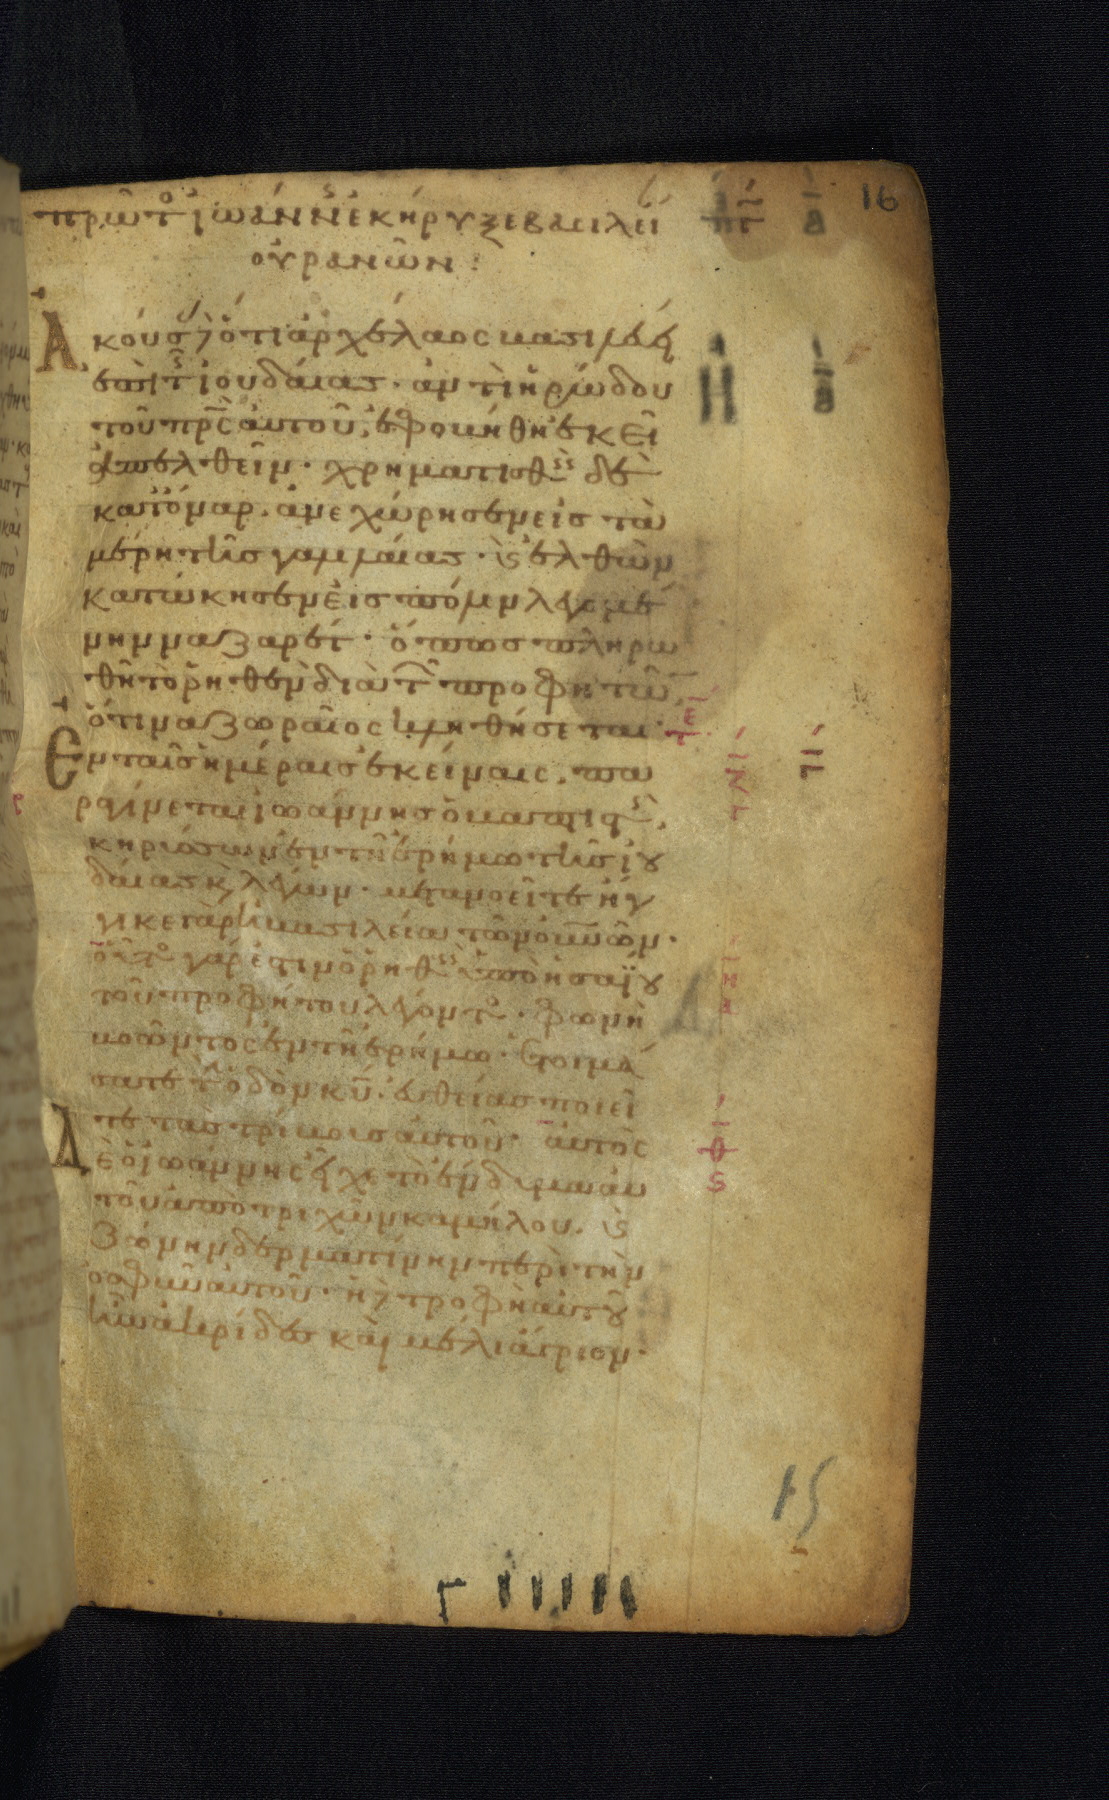 πρῶτ ἰωάννης ἐκήρυξε βασιλεί 16
οὐρανῶν :
Ἀκούσ ὅτι ἀρχέλαος βασιλεύει
ἐπὶ τῆς ἰουδαίας · ἀντὶ ἡρώδου
τοῦ πρς αὐτοῦ, ἐφοβήθη ἐκεῖ
ἀπελθεῖν · χρηματισθεὶς δὲ
κατ' ὄναρ · ἀνεχώρησεν εἰς τὰ
μέρη τῆς γαλιλαίας · καὶ ἐλθὼν
κατώκησεν εἰς πόλιν λεγομέ
νην ναζαρέτ · ὅπως πληρω
θῇ τὸ ῥηθὲν διὰ τῶν προφητῶν
ὅτι ναζωραῖος κληθήσεται ·
Ἐν ταῖς ἡμέραις ἐκείναις · πα
ραγίνεται ἰωάννης ὁ βαπτιστὴς,
κηρύσσων ἐν τῇ ἐρήμω τῆς ἰου
δαίας κ λέγων · μετανοεῖτε ἤγ
γικε γὰρ ἡ βασιλεία τῶν οὐνῶν ·
οὗτος γάρ ἐστιν ὁ ῥηθεὶς ὑπὸ ἡσαΐου
τοῦ προφήτου λέγοντος · φωνὴ
βοῶντος ἐν τῇ ἐρήμω · ἑτοιμά
σατε τὴν ὁδὸν κυ · εὐθείας ποιεῖ
τε τὰς τρίβους αὐτοῦ · αὐτὸς
Δὲ ὁ ἰωάννης εἶχε τὸ ἔνδυμα αὐ
τοῦ ἀπὸ τριχῶν καμήλου · καὶ
ζώνην δερματίνην περὶ τὴν
ὀσφὺν αὐτοῦ · ἡ δὲ τροφὴ αὐτοῦ
ἦν ἀκρίδες καὶ μέλι ἄγριον ·
15